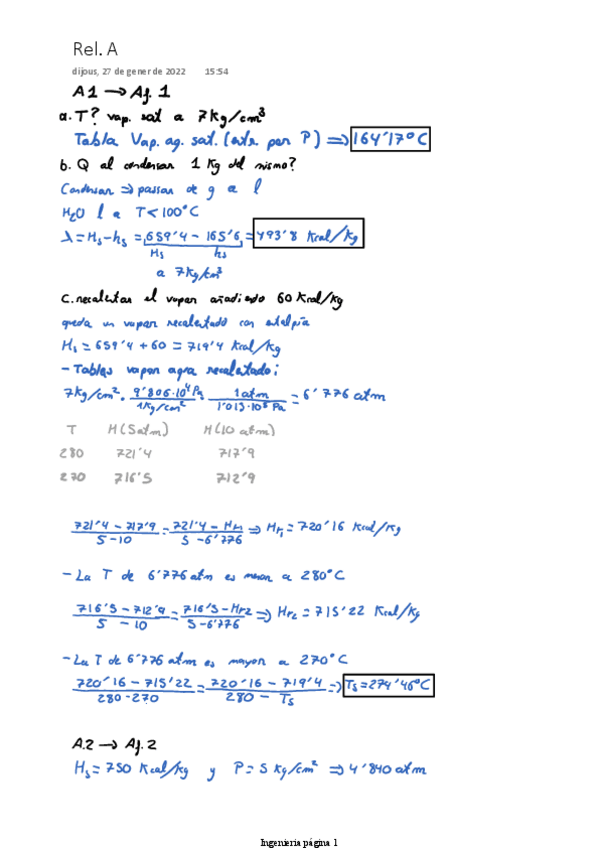 Rel. A
dijous, 27 de gener de 2022 15:54
A1 → Aj. 1
a. T? vap. sat a 7kg/cm³
Tabla Vap. ag. sat. (entr. por P) ⇒ 164'17°C
b. Q al condensar 1 Kg del mismo?
Condensar ⇒ passar de g a l
H₂O l a T<100°C
λ = Hs-hs = 659'4 - 165'6 = 493'8 Kcal/Kg
Hs hs
a 7Kg/cm³
C. recalentar el vapor añadiendo 60 Kcal/Kg
queda un vapor recalentado con entalpia
Hs = 659'4 + 60 = 719'4 Kcal/Kg
- Tablas vapor agua recalentado:
7Kg/cm² · 9'806·10⁴Pa / 1Kg/cm² · 1atm / 1'013·10⁵Pa = 6'776 atm
T H(5atm) H(10 atm)
280 721'4 717'9
270 716'5 712'9
721'4 - 717'9 / 5-10 = 721'4 - Hr₁ / 5-6'776 ⇒ Hr₁ = 720'16 Kcal/Kg
- La T de 6'776atm es menor a 280°C
716'5 - 712'9 / 5 - 10 = 716'5 - Hr2 / 5-6'776 ⇒ Hr2 = 715'22 Kcal/Kg
- La T de 6'776 atm es mayor a 270°C
720'16 - 715'22 / 280-270 = 720'16 - 719'4 / 280 - Ts ⇒ Ts = 274'46°C
A.2 → Aj. 2
Hs = 750 Kcal/Kg y P = 5 Kg/cm² ⇒ 4'840 atm
Ingenieria página 1